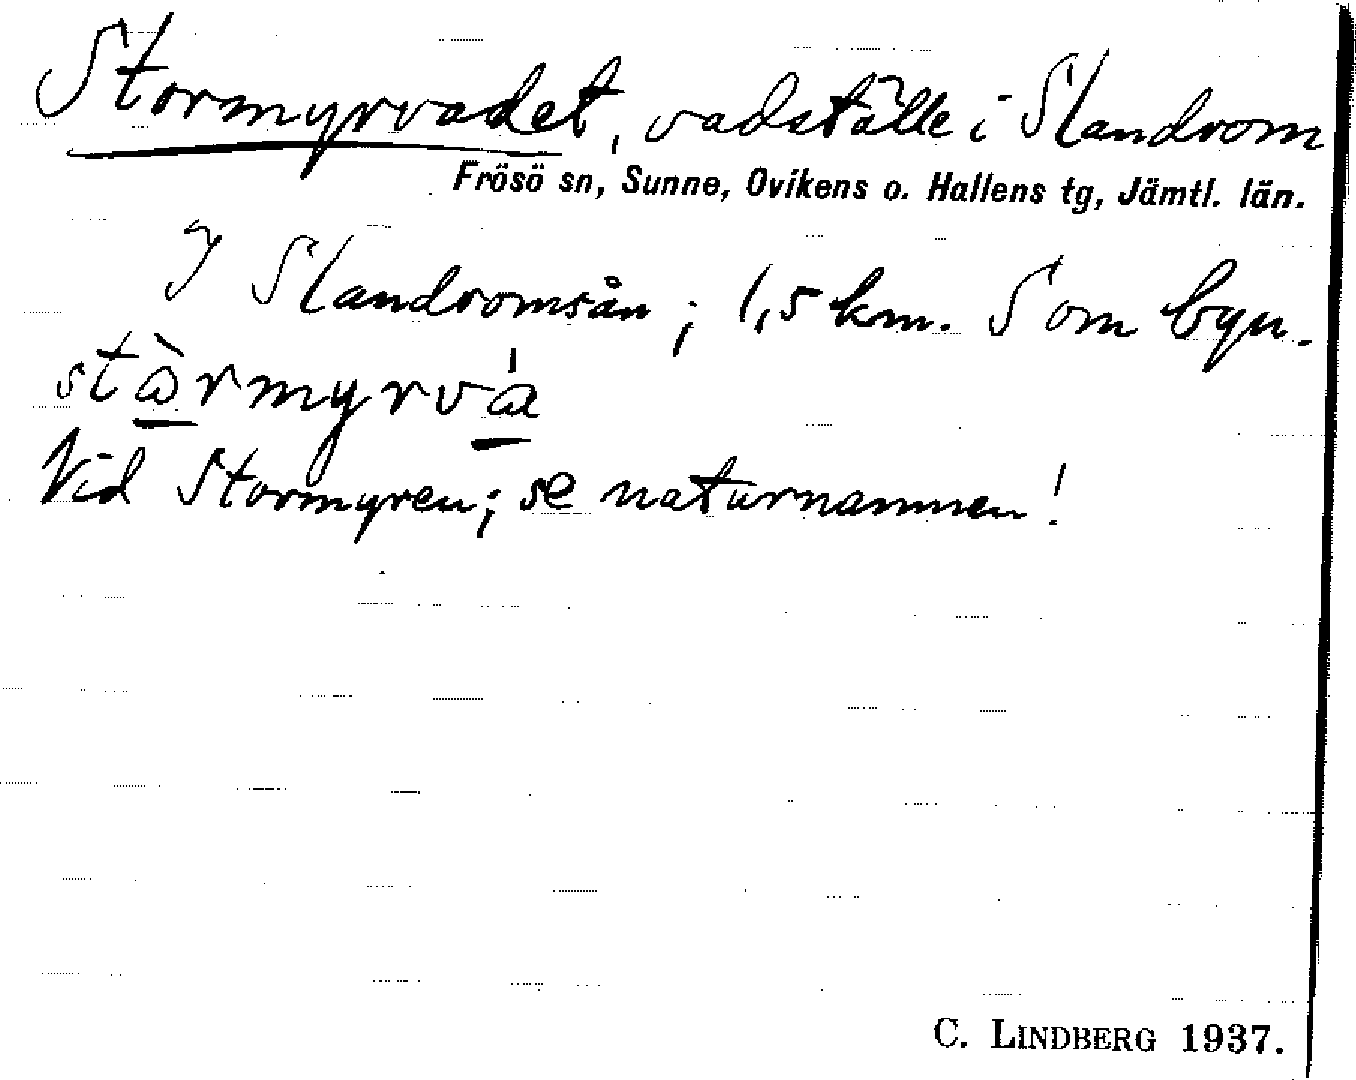 Stormyrvadet, vadställe i Slandrom
Frösö sn, Sunne, Ovikens o. Hallens tg, Jämtl. län.
I Slandromsån; 1,5 km. Som byn.
stὰrmyrvá
Vid Stormyren; se naturnamnen!
C. LINDBERG 1937.